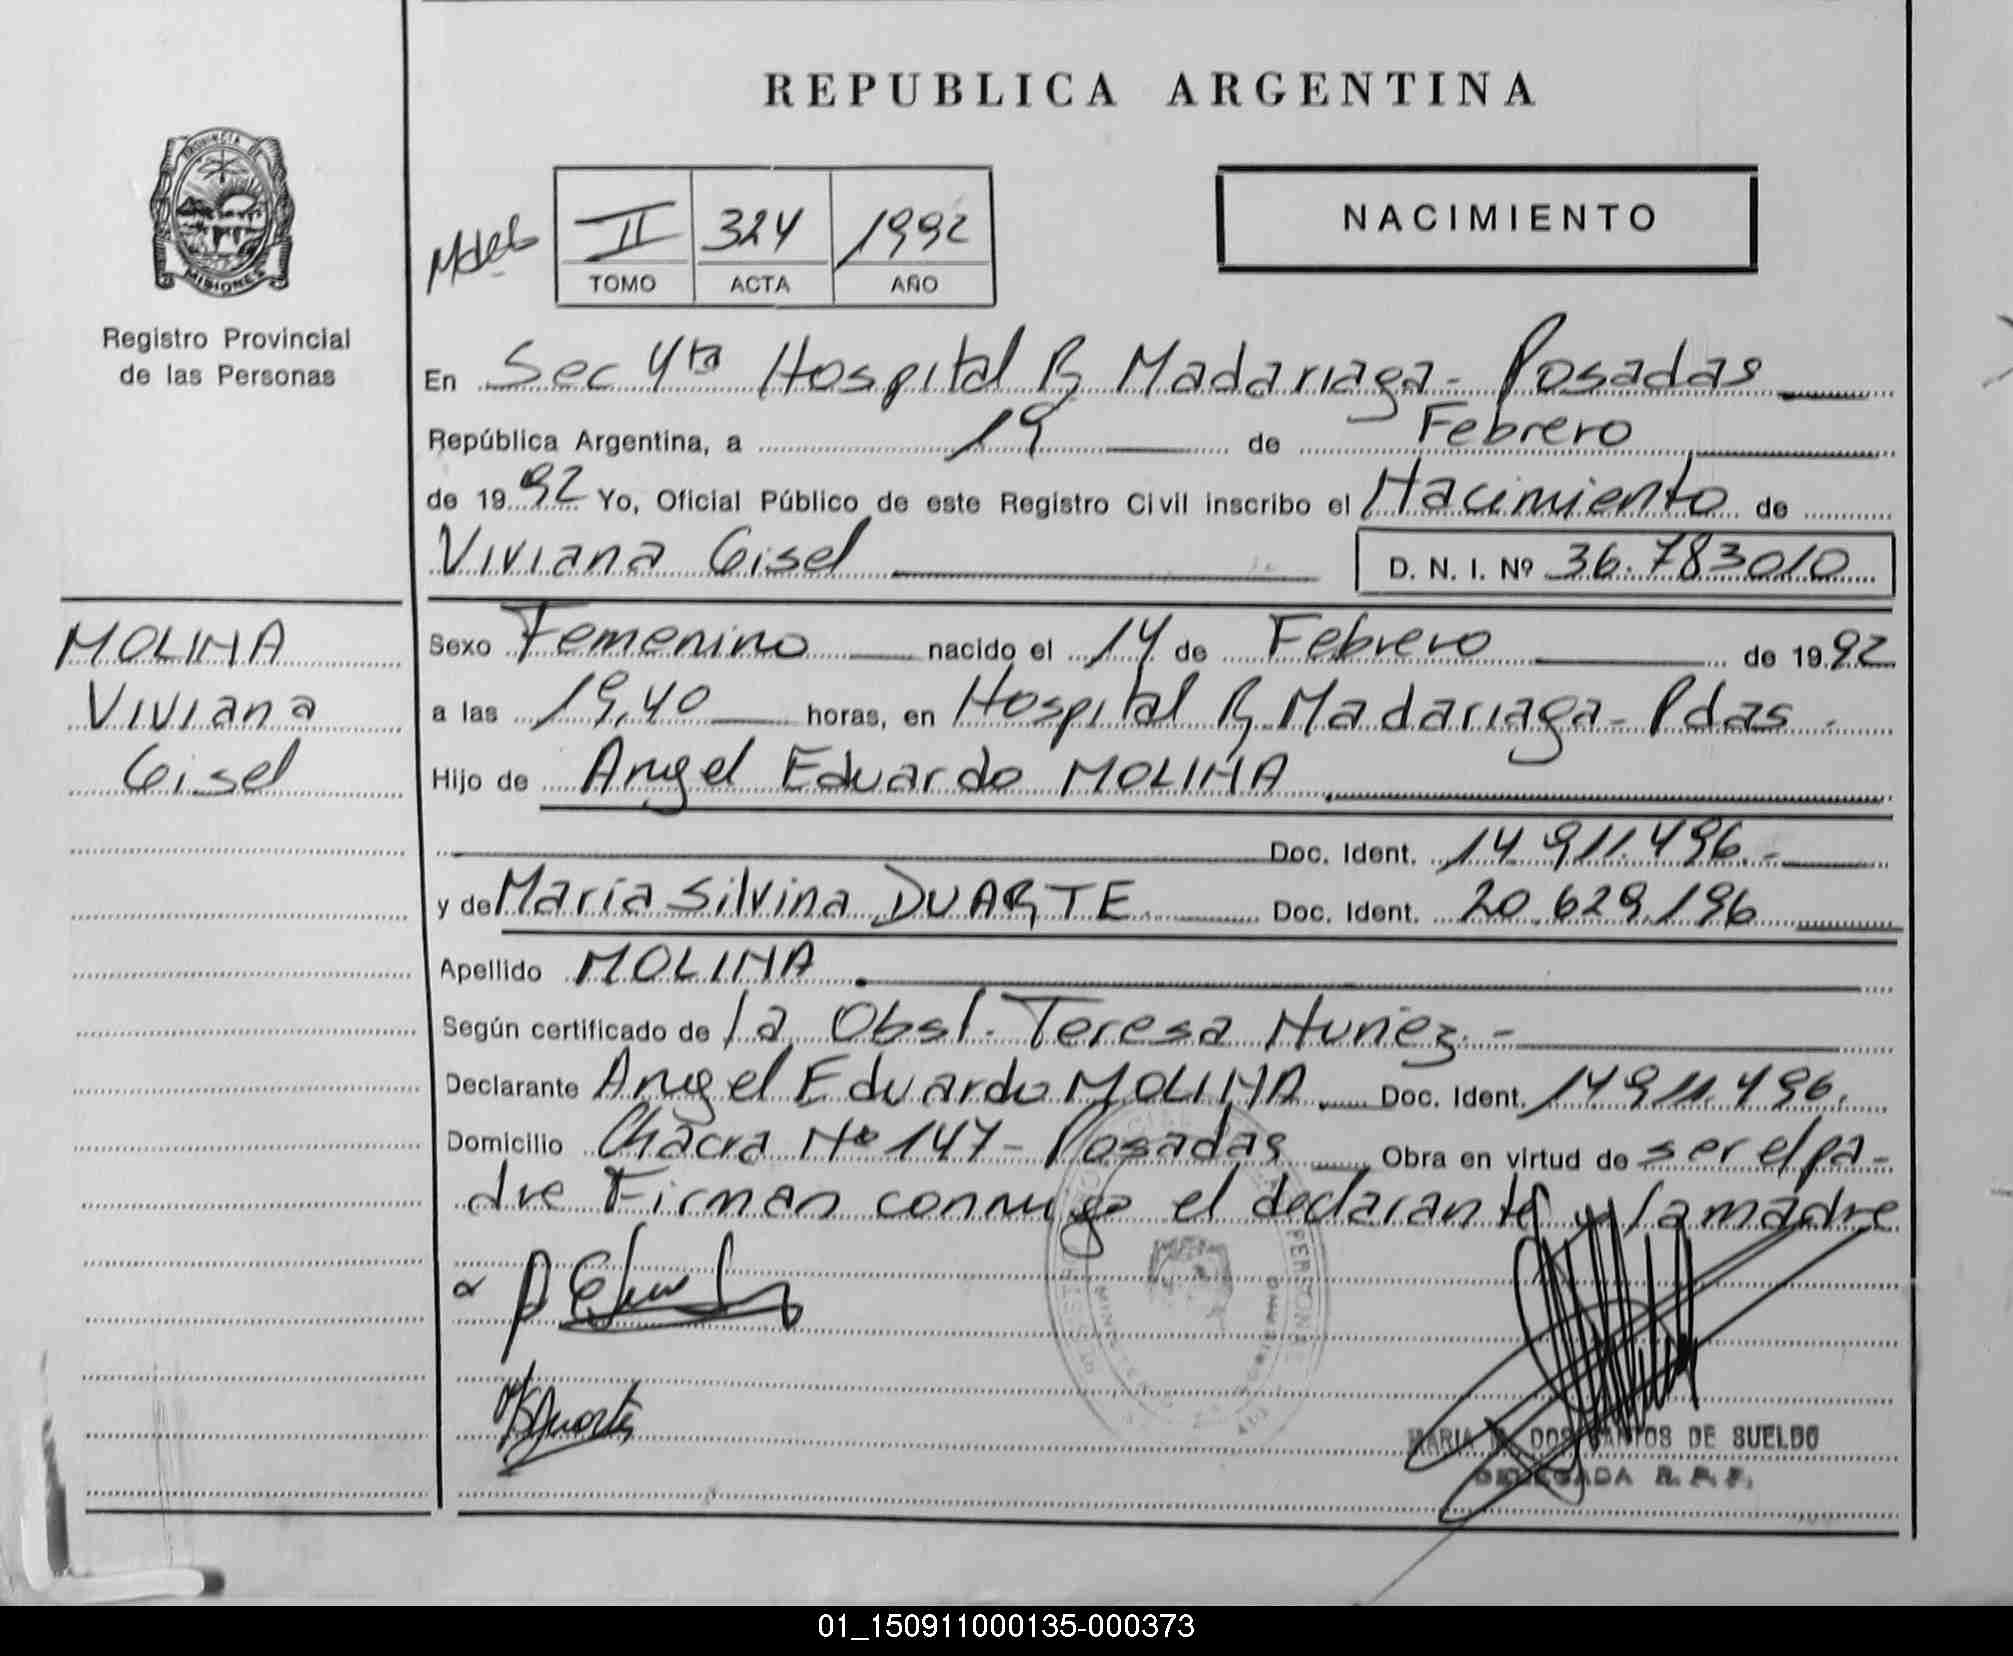 REPUBLICA ARGENTINA
PROVINCIA DE
MISIONES
Registro Provincial
de las Personas
II 324 1992
TOMO ACTA AÑO
NACIMIENTO
En Sec 4ta Hospital R Madariaga - Posadas
República Argentina, a 19 de Febrero
de 1992 Yo, Oficial Público de este Registro Civil inscribo el Nacimiento de
Viviana Gisel D. N. I. Nº 36.783010
MOLINA
Viviana
Gisel
Sexo Femenino nacido el 14 de Febrero de 1992
a las 19,40 horas, en Hospital R Madariaga - Pdas -
Hijo de Angel Eduardo MOLINA
Doc. Ident. 14.911.496.-
y de María Silvina DUARTE Doc. Ident. 20.629.196
Apellido MOLINA
Según certificado de la Obst. Teresa Nuñez.-
Declarante Angel Eduardo MOLINA Doc. Ident. 14911.496.
Domicilio Chacra Nº 147 - Posadas Obra en virtud de ser el pa-
dre Firman conmigo el declarante y la madre
MARIA DOS SANTOS DE SUELDO
DELEGADA R. P. P.
01_150911000135-000373